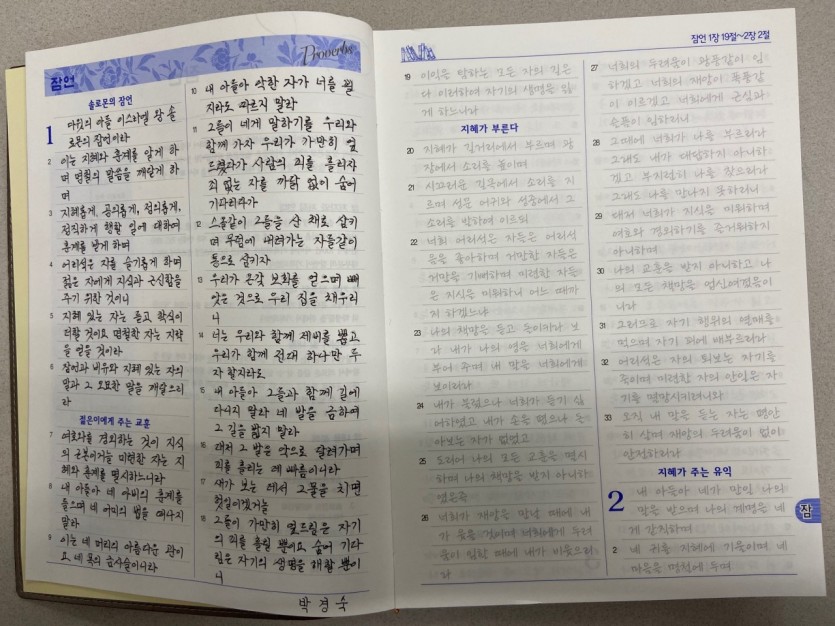 잠언
Proverbs
솔로몬의 잠언
1 다윗의 아들 이스라엘 왕 솔
로몬의 잠언이라
2 이는 지혜와 훈계를 알게 하
며 명철의 말씀을 깨닫게 하
며
3 지혜롭게, 공의롭게, 정의롭게,
정직하게 행할 일에 대하여
훈계를 받게 하며
4 어리석은 자를 슬기롭게 하며
젊은 자에게 지식과 근신함을
주기 위한 것이니
5 지혜 있는 자는 듣고 학식이
더할 것이요 명철한 자는 지략
을 얻을 것이라
6 잠언과 비유와 지혜 있는 자의
말과 그 오묘한 말을 깨달으리
라
젊은이에게 주는 교훈
7 여호와를 경외하는 것이 지식
의 근본이거늘 미련한 자는 지
혜와 훈계를 멸시하느니라
8 내 아들아 네 아비의 훈계를
들으며 네 어미의 법을 떠나지
말라
9 이는 네 머리의 아름다운 관이
요 네 목의 금사슬이니라
10 내 아들아 악한 자가 너를 꾈
지라도 따르지 말라
11 그들이 네게 말하기를 우리와
함께 가자 우리가 가만히 엎
드렸다가 사람의 피를 흘리자
죄 없는 자를 까닭 없이 숨어
기다리다가
12 스올같이 그들을 산 채로 삼키
며 무덤에 내려가는 자들같이
통으로 삼키자
13 우리가 온갖 보화를 얻으며 빼
앗은 것으로 우리 집을 채우리
니
14 너는 우리와 함께 제비를 뽑고
우리가 함께 전대 하나만 두
자 할지라도
15 내 아들아 그들과 함께 길에
다니지 말라 네 발을 금하여
그 길을 밟지 말라
16 대저 그 발은 악으로 달려가며
피를 흘리는 데 빠름이니라
17 새가 보는 데서 그물을 치면
헛일이겠거늘
18 그들이 가만히 엎드림은 자기
의 피를 흘릴 뿐이요 숨어 기다
림은 자기의 생명을 해할 뿐이
니
박경숙
잠언 1장 19절~2장 2절
19 이익을 탐하는 모든 자의 길은
다 이러하여 자기의 생명을 잃
게 하느니라
지혜가 부른다
20 지혜가 길거리에서 부르며 광
장에서 소리를 높이며
21 시끄러운 길목에서 소리를 지
르며 성문 어귀와 성중에서 그
소리를 발하여 이르되
22 너희 어리석은 자들은 어리석
음을 좋아하며 거만한 자들은
거만을 기뻐하며 미련한 자들
은 지식을 미워하니 어느 때까
지 하겠느냐
23 나의 책망을 듣고 돌이키라 보
라 내가 나의 영을 너희에게
부어 주며 내 말을 너희에게
보이리라
24 내가 불렀으나 너희가 듣기 싫
어하였고 내가 손을 폈으나 돌
아보는 자가 없었고
25 도리어 나의 모든 교훈을 멸시
하며 나의 책망을 받지 아니하
였은즉
26 너희가 재앙을 만날 때에 내
가 웃을 것이며 너희에게 두려
움이 임할 때에 내가 비웃으리
라
27 너희의 두려움이 광풍같이 임
하겠고 너희의 재앙이 폭풍같
이 이르겠고 너희에게 근심과
슬픔이 임하리니
28 그때에 너희가 나를 부르리라
그래도 내가 대답하지 아니하
겠고 부지런히 나를 찾으리라
그래도 나를 만나지 못하리니
29 대저 너희가 지식을 미워하며
여호와 경외하기를 즐거워하지
아니하며
30 나의 교훈을 받지 아니하고 나
의 모든 책망을 업신여겼음이
니라
31 그러므로 자기 행위의 열매를
먹으며 자기 꾀에 배부르리라
32 어리석은 자의 퇴보는 자기를
죽이며 미련한 자의 안일은 자
기를 멸망시키려니와
33 오직 내 말을 듣는 자는 평안
히 살며 재앙의 두려움이 없이
안전하리라
지혜가 주는 유익
2 내 아들아 네가 만일 나의
말을 받으며 나의 계명을 네
게 간직하며
2 네 귀를 지혜에 기울이며 네
마음을 명철에 두며
잠